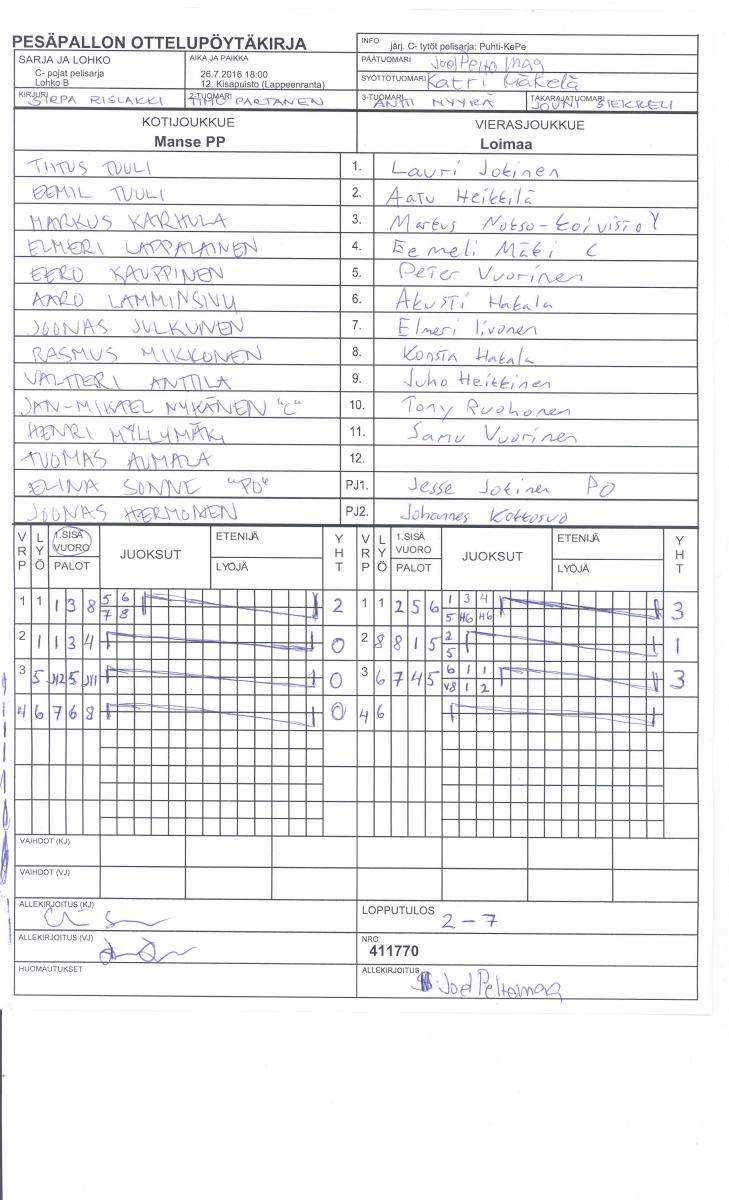 PESÄPALLON OTTELUPÖYTÄKIRJA
INFO järj. C- tytöt pelisarja: Puhti-KePe
SARJA JA LOHKO
C- pojat pelisarja
Lohko B
AIKA JA PAIKKA
26.7.2016 18:00
12. Kisapuisto (Lappeenranta)
PÄÄTUOMARI Joel Peltomaa
SYÖTTÖTUOMARI Katri Mäkelä
KIRJURI SIRPA RISLAKKI
2-TUOMARI TIMO PARTANEN
3-TUOMARI ANTTI MYYRÄ
TAKARAJATUOMARI JOUNI SIEKKELI
KOTIJOUKKUE
Manse PP
VIERASJOUKKUE
Loimaa
TIITUS TUULI 1. Lauri Jokinen
EEMIL TUULI 2. Aatu Heikkilä
MARKUS KARHULA 3. Markus Nokso-Koivisto Y
ELMERI LAPPALAINEN 4. Eemeli Mäki C
EERO KAUPPINEN 5. Peter Vuorinen
AARO LAMMINSIVU 6. Akusti Hakala
JOONAS JULKUNEN 7. Elmeri Iivonen
RASMUS MIKKONEN 8. Konsta Hakala
VALTTERI ANTTILA 9. Juho Heikkinen
JAN-MIKAEL NYKÄNEN "C" 10. Tony Ruohonen
HENRI MYLLYMÄKI 11. Samu Vuorinen
TUOMAS AUMALA 12.
ELINA SONNE "PO" PJ1. Jesse Jokinen PO
JOONAS HERMONEN PJ2. Johannes Kottosuo
VRP LYÖ 1.SISÄ VUORO PALOT JUOKSUT ETENIJÄ LYÖJÄ YHT VRP LYÖ 1.SISÄ VUORO PALOT JUOKSUT ETENIJÄ LYÖJÄ YHT
1 1 1 3 8 5 6 2 1 1 2 5 6 1 3 4 3
7 8 5 H6 H6
2 1 1 3 4 0 2 8 8 1 5 2 1
5
3 5 J12 5 J11 0 3 6 7 4 5 6 1 1 3
V8 1 2
4 6 7 6 8 0 4 6
VAIHDOT (KJ)
VAIHDOT (VJ)
ALLEKIRJOITUS (KJ)
LOPPUTULOS 2-7
ALLEKIRJOITUS (VJ)
NRO
411770
HUOMAUTUKSET
ALLEKIRJOITUS Joel Peltomaa